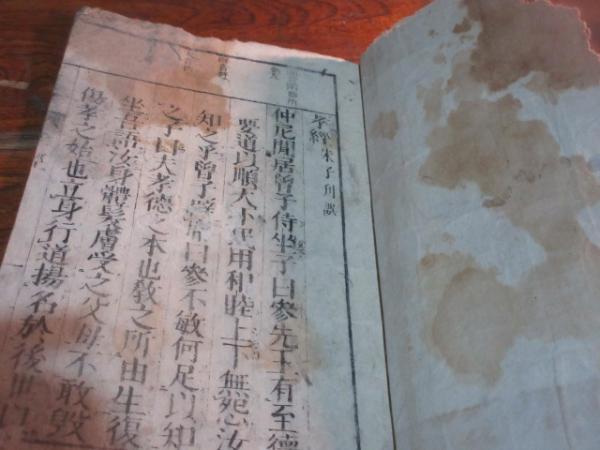 孝經 朱子刊誤
仲尼閒居曾子侍坐子曰參先王有至德
要道以順天下民用和睦上下無怨汝
知之乎曾子曰參不敏何足以知
之子曰夫孝德之本也敎之所由生復
坐吾語汝身體髮膚受之父母不敢毁
傷孝之始也立身行道揚名於後世